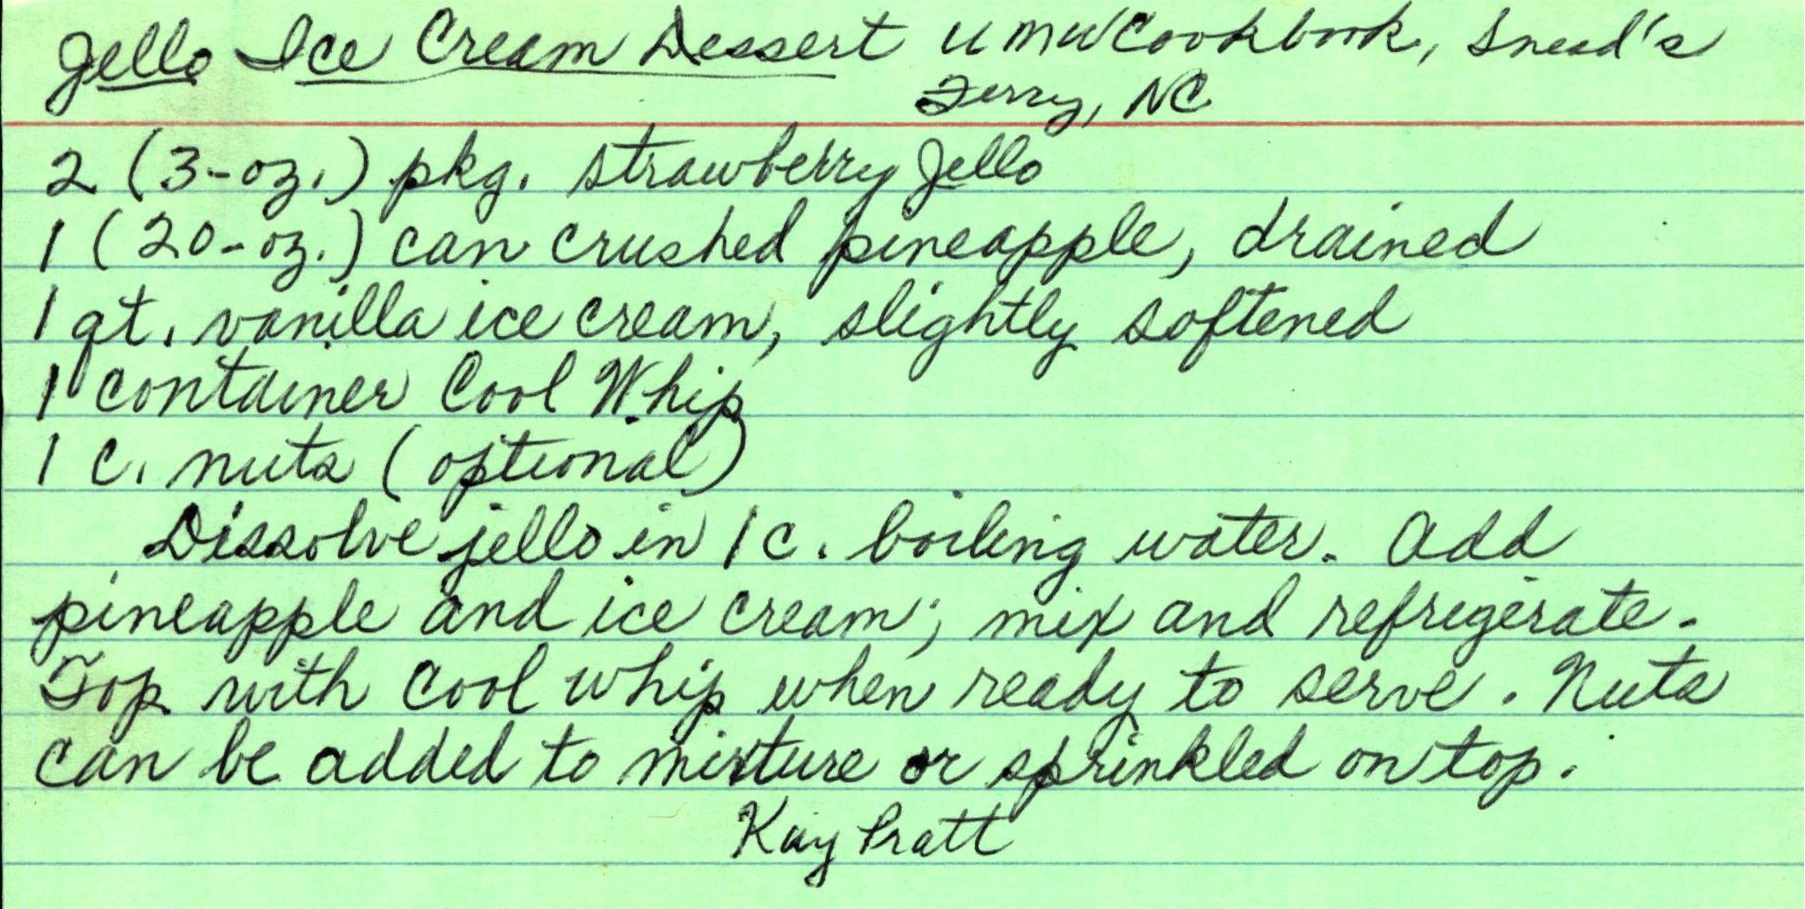 Jello Ice Cream Dessert UMW Cookbook, Snead's
Ferry, NC
2 (3-oz.) pkg. strawberry Jello
1 (20-oz.) can crushed pineapple, drained
1 qt. vanilla ice cream, slightly softened
1 container Cool Whip
1 c. nuts (optional)
Dissolve jello in 1 c. boiling water. Add
pineapple and ice cream; mix and refrigerate.
Top with cool whip when ready to serve. Nuts
can be added to mixture or sprinkled on top.
Kay Pratt